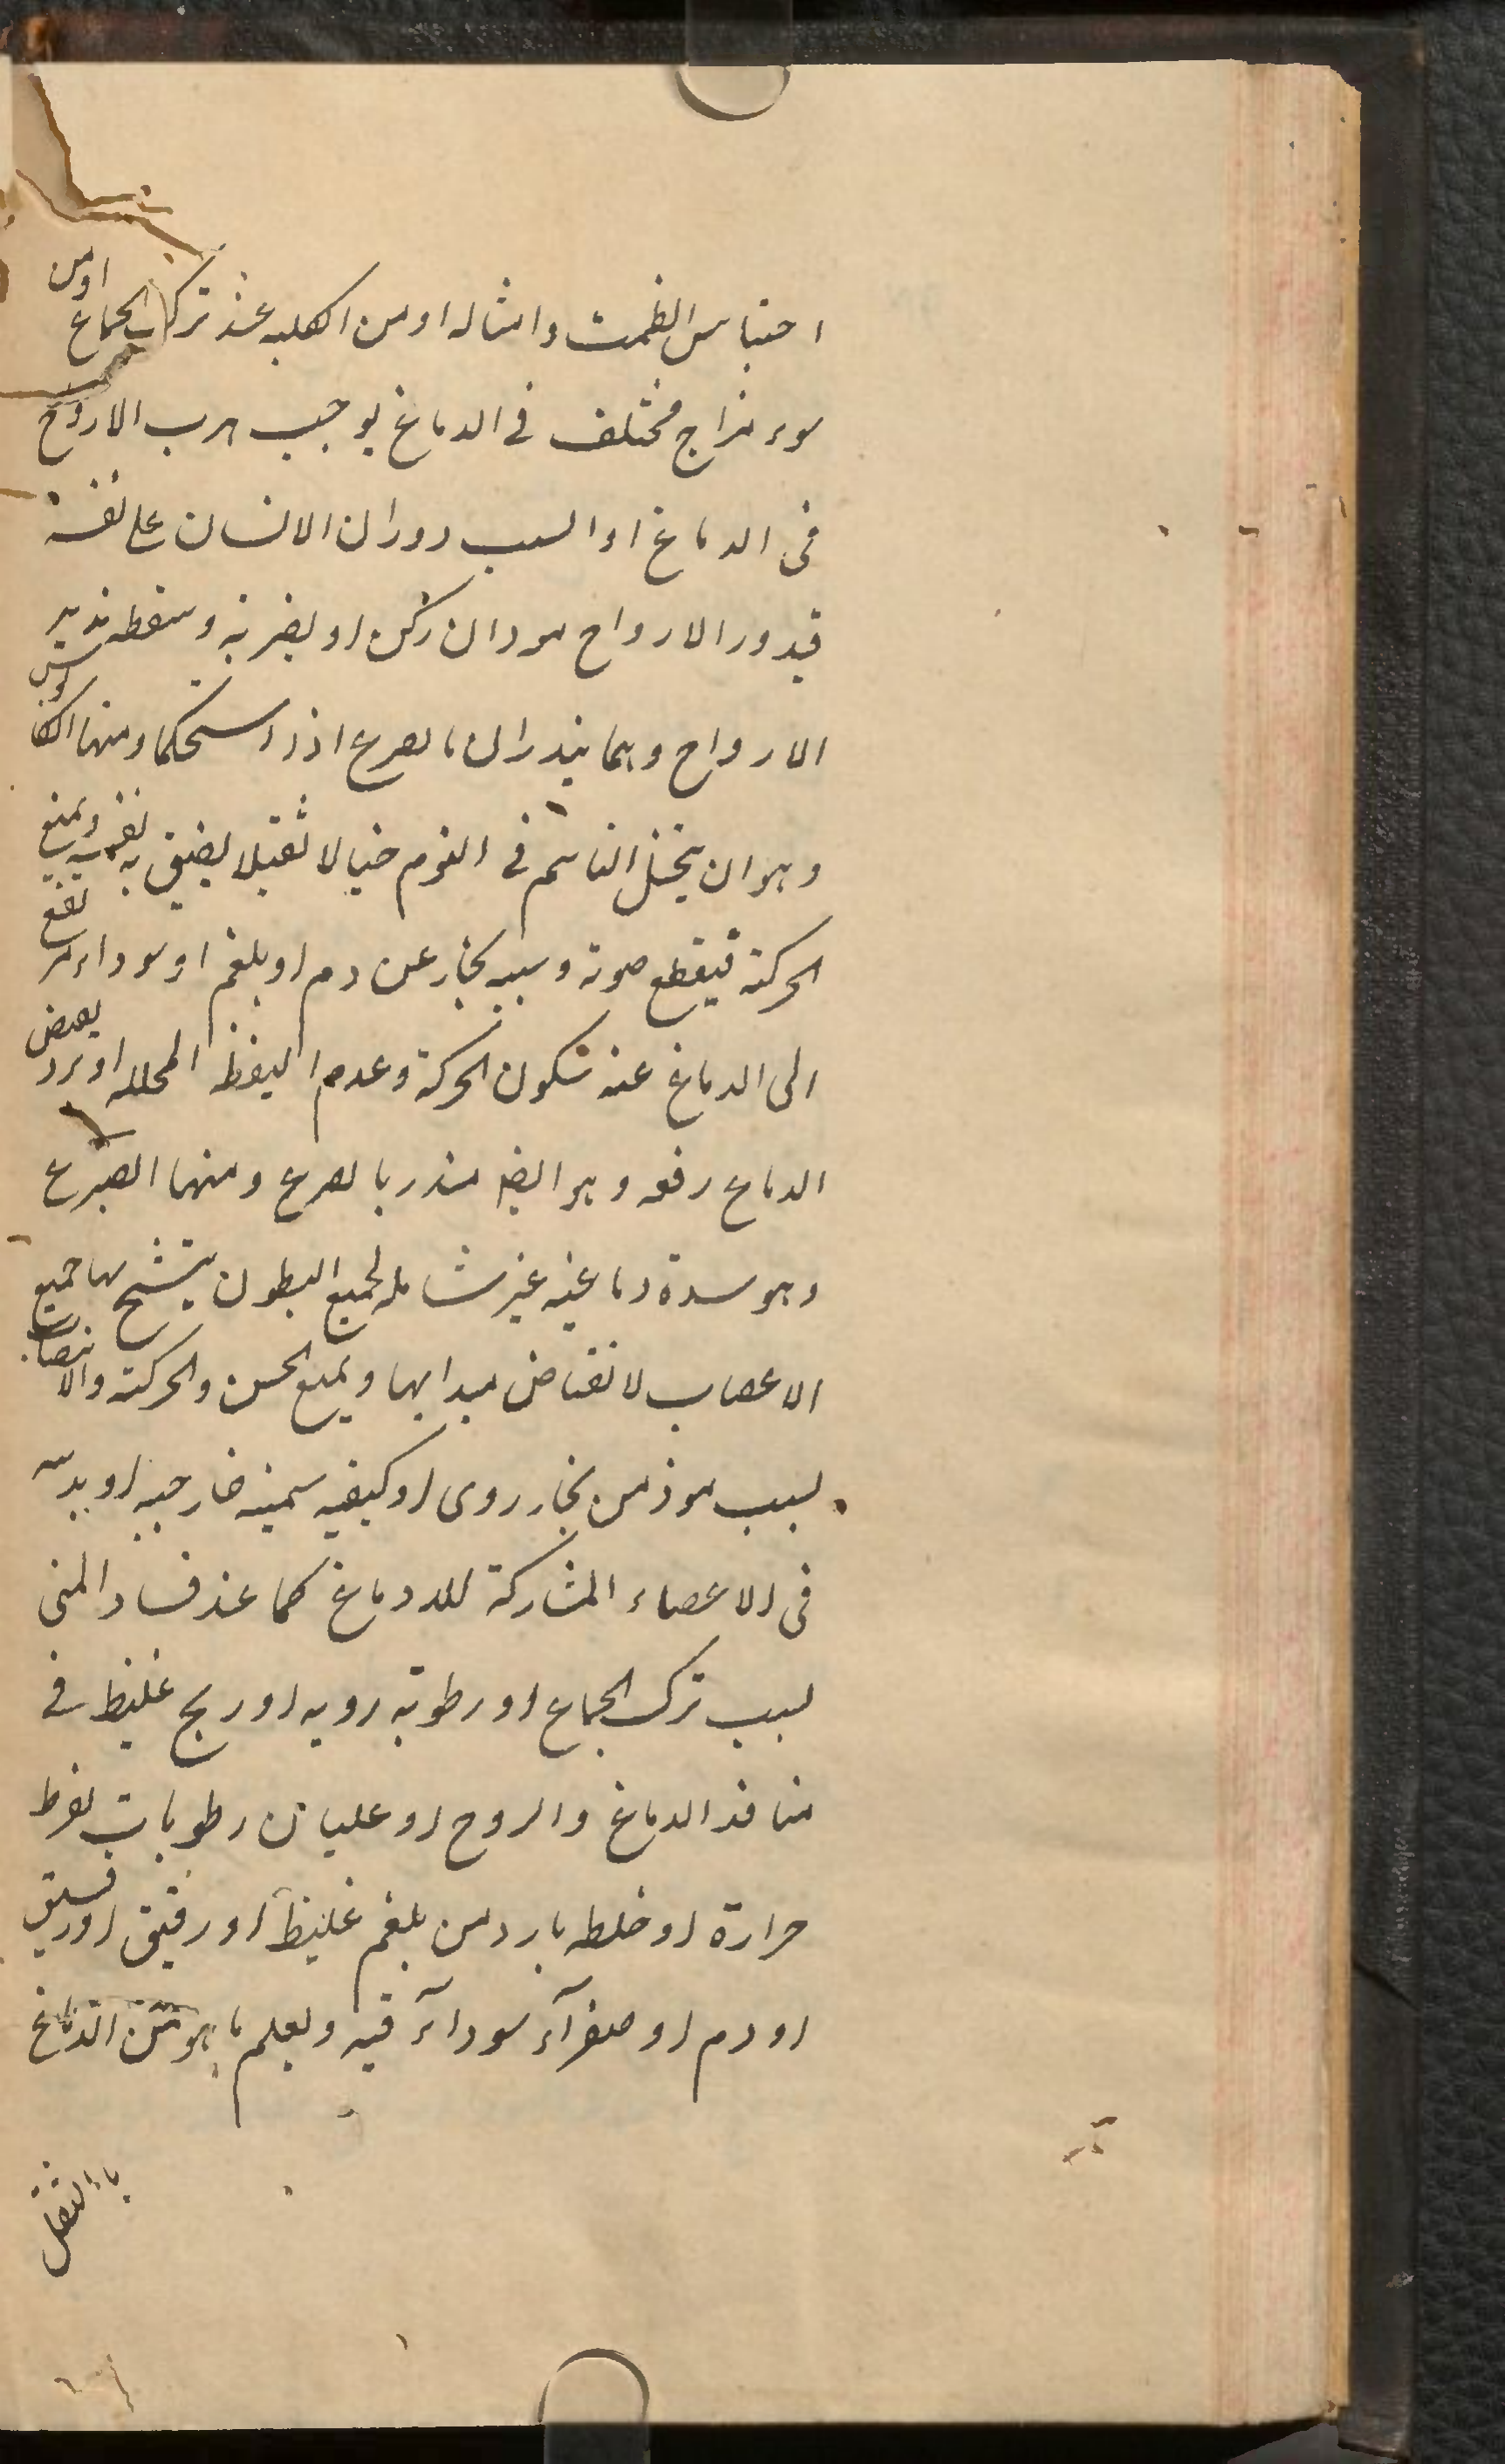 احتباس الطمث وامثاله او من الكلیه عند ترک الجماع او من
سوء مزاج مختلف فی الدماغ یوجب هرب الارواح
فی الدماغ او السبب دوران الانسان علی نفسه
فیدور الارواح وان سکن او بضربة وسقطه تدیر
الارواح وهما ینذران بالصرع اذا استحکما ومنها الکابوس
وهو ان یتخیل النائم فی النوم خیالا ثقیلا یضیق به نفسه ویمنع
الحرکة فیقطع صوته وسببه بخار عن دم او بلغم او سوداء یرتفع
الی الدماغ عند سکون الحرکة وعدم الیقظه المحلله او برد یعرض
الدماغ دفعه وهو ایضا منذر بالصرع ومنها الصرع
وهو سدة دماغیه غیر شامله لجمیع البطون یتشنج بها جمیع
الاعصاب لانقباض مبدایها ویمنع الحس والحرکة والانتصاب
لسبب موذ من بخار ردی او کیفیه سمیه خارجیه او بدنیه
فی الاعضاء المشارکة للددماغ کما عند فساد المنی
لسبب ترک الجماع او رطوبة ردیه او ریح غلیظ فی
منافذ الدماغ والروح او غلیان رطوبات لفرط
حرارة او خلطه بارد من بلغم غلیظ او رقیق او ریق
او دم او صفرآء سودآء فیه ویعلم ما هو من الدماغ
باالثقل